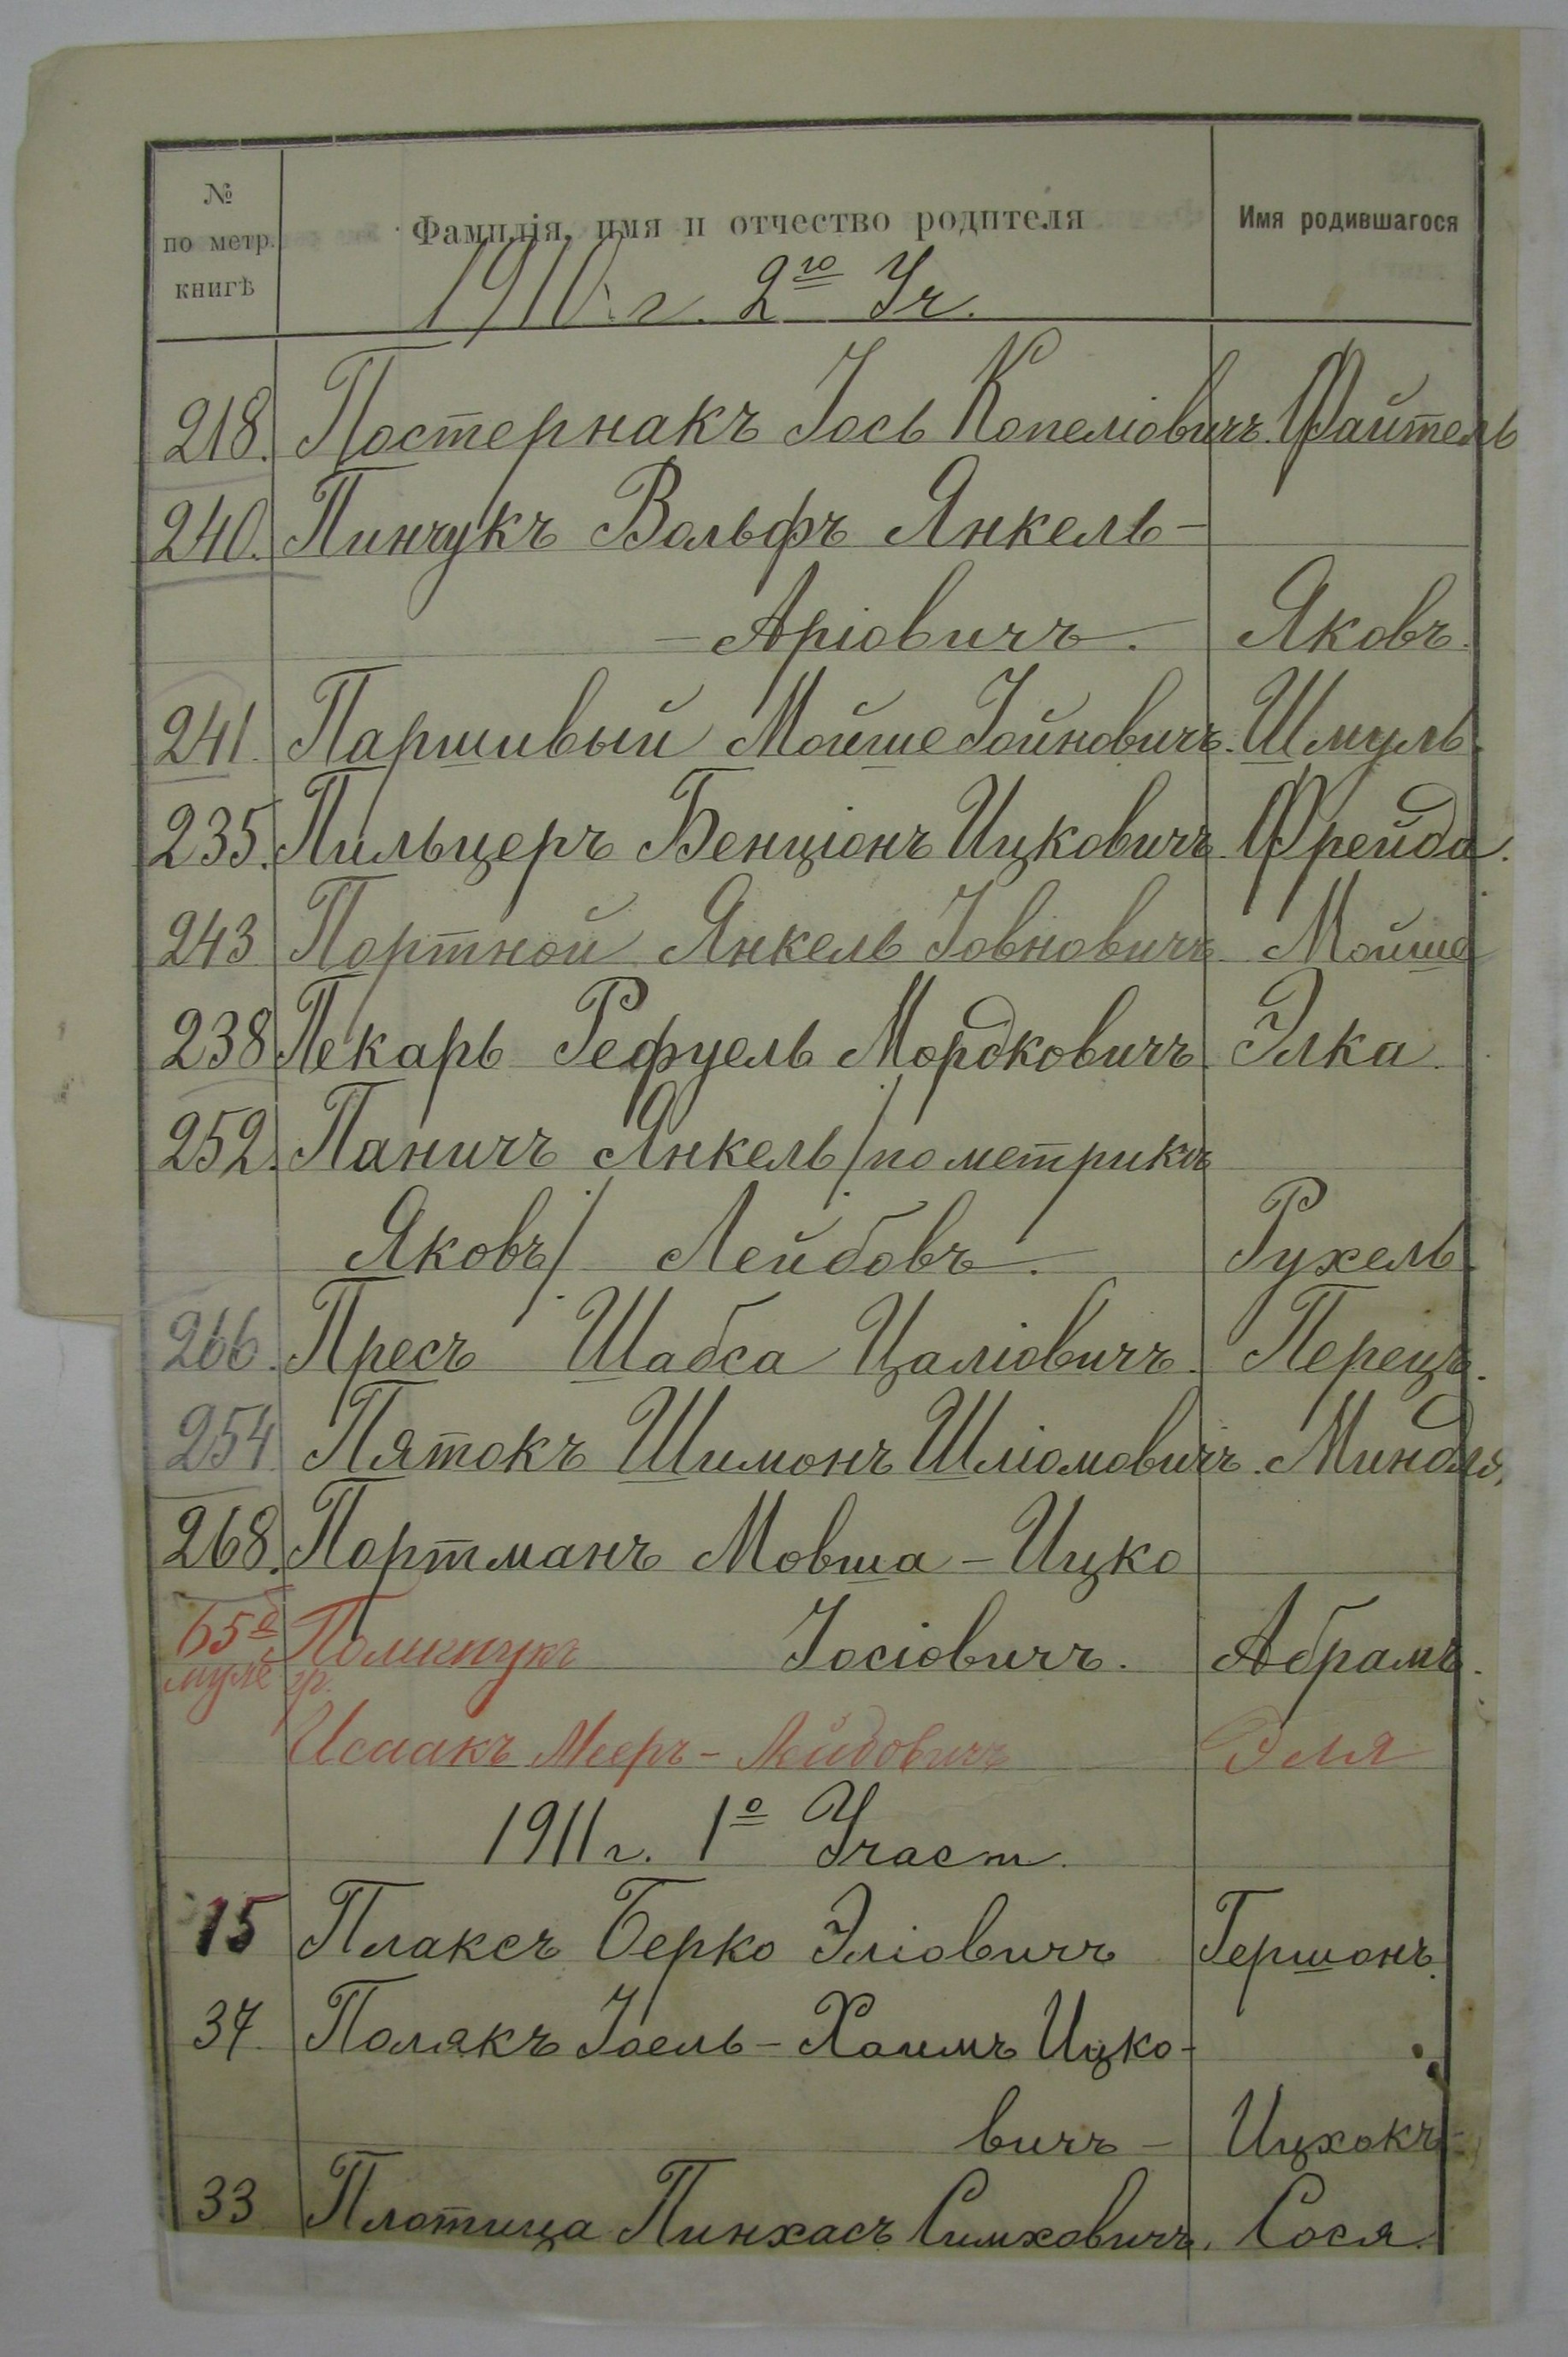 № по метр. книгѣ Фамилія, имя и отчество родителя Имя родившагося
1910 г. 2го Уч.
218. Постернакъ Іось Копеліовичъ. Файтель
240. Пинчукъ Вольфъ Янкель-
-Аріовичъ. Яковъ.
241. Паршивый Мойше Іойновичъ. Шмуль.
235. Пильцеръ Бенціонъ Ицковичъ. Фрейда.
243 Портной Янкель Іовновичъ. Мойше
238 Пекарь Рефуель Мордковичъ. Элка.
252. Паничъ Янкель /по метрикѣ
Яковъ/ Лейбовъ. Рухель.
266. Пресъ Шабса Цаліовичъ. Перецъ.
254. Пятокъ Шимонъ Шліомовичъ. Миндля.
268. Портманъ Мовша-Ицко
Іосіовичъ. Абрамъ.
65
Исаакъ Мееръ-Лейбовичъ Эля
1911 г. 1о Участ.
15 Плаксъ Берко Эліовичъ Гершонъ.
37. Полякъ Іоель-Хаимъ Ицко-
вичъ- Ицхокъ-
33 Плотица Пинхасъ Симховичъ. Сося.